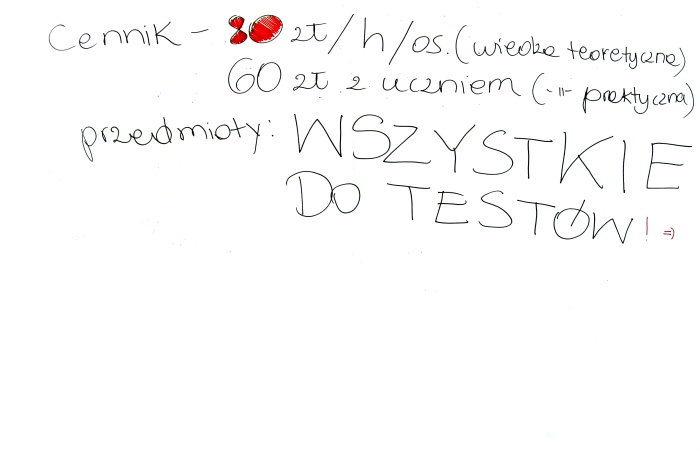 Cennik - 30 zł/h/os. (wiedza teoretyczna)
60 zł z uczniem (-"- praktyczna)
przedmioty: WSZYSTKIE
DO TESTÓW! =)